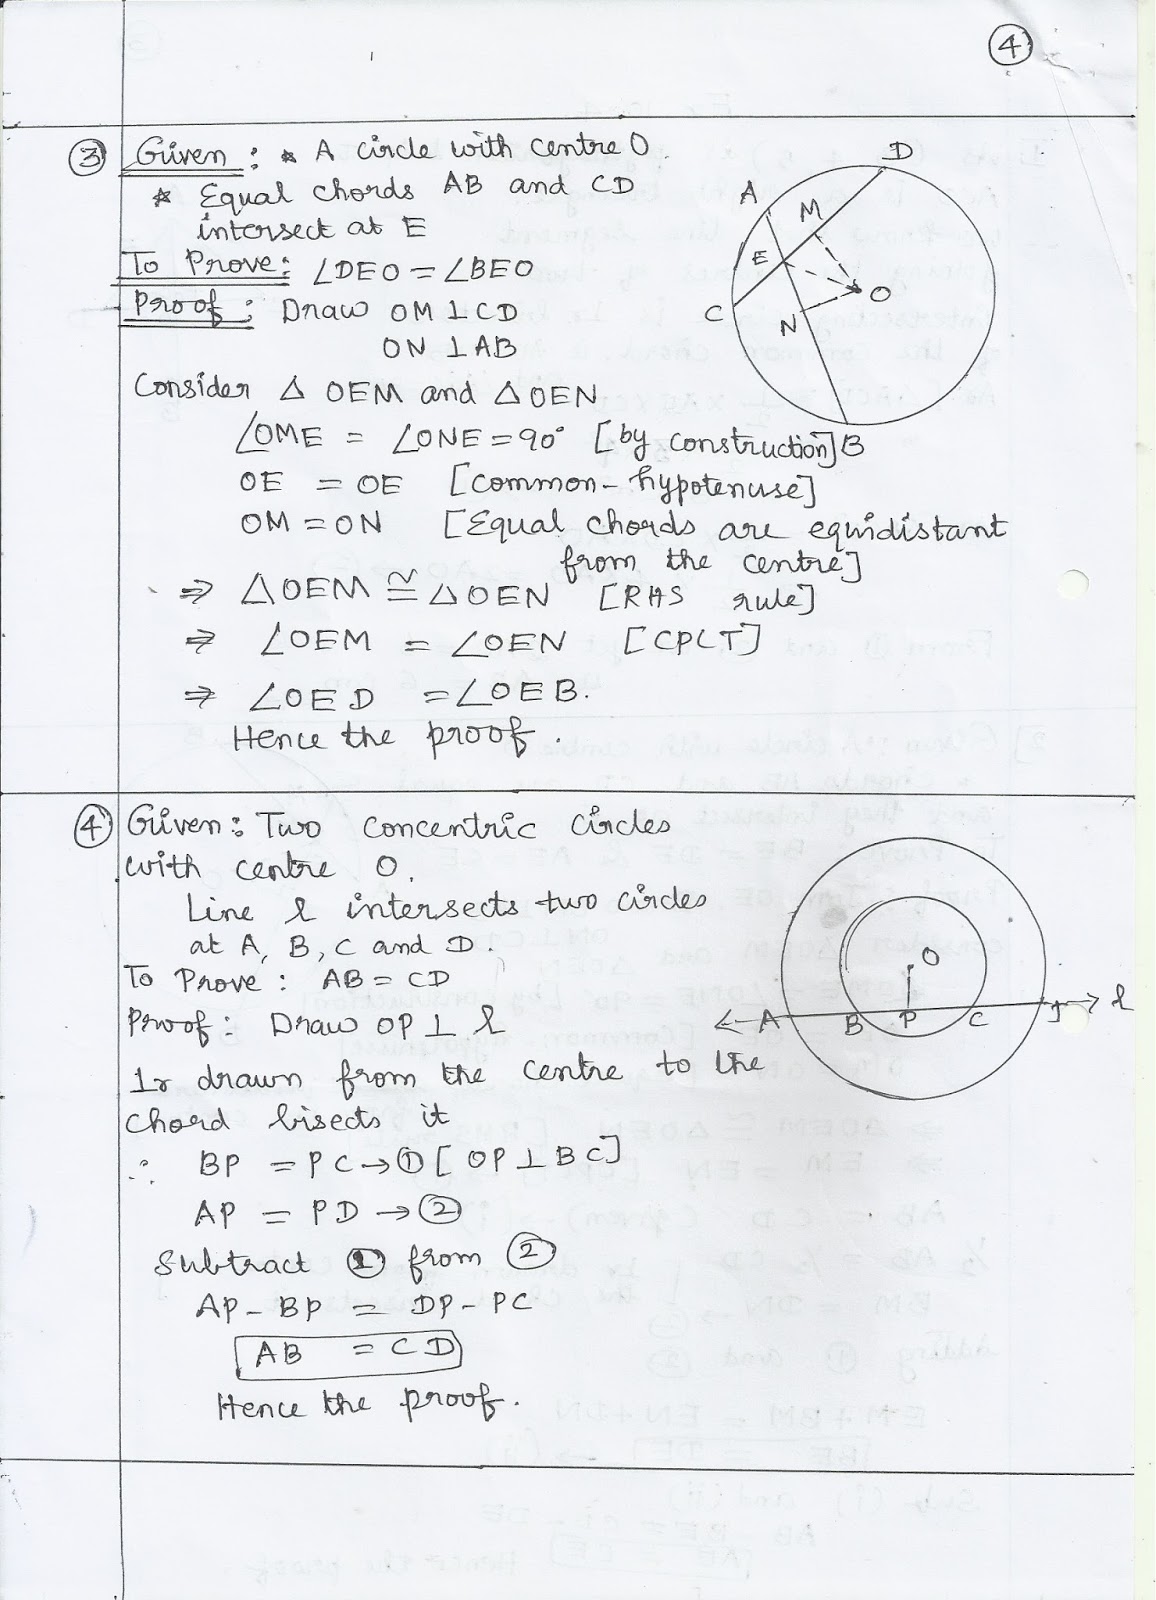 4
3 Given : * A circle with centre O.
* Equal chords AB and CD
intersect at E
To Prove: ∠DEO = ∠BEO
Proof : Draw OM ⊥ CD
ON ⊥ AB
Consider △ OEM and △OEN
∠OME = ∠ONE = 90° [by construction]
OE = OE [common - hypotenuse]
OM = ON [Equal chords are equidistant
from the centre]
⇒ △OEM ≅ △OEN [RHS rule]
⇒ ∠OEM = ∠OEN [CPCT]
⇒ ∠OED = ∠OEB.
Hence the proof.
D
A
M
E
O
C
N
B
4 Given : Two concentric circles
with centre O.
Line l intersects two circles
at A, B, C and D.
To Prove : AB = CD
Proof : Draw OP ⊥ l
⊥r drawn from the centre to the
chord bisects it
∴ BP = PC → 1 [OP ⊥ BC]
AP = PD → 2
Subtract 1 from 2
AP - BP = DP - PC
AB = CD
Hence the proof.
O
A B P C D l